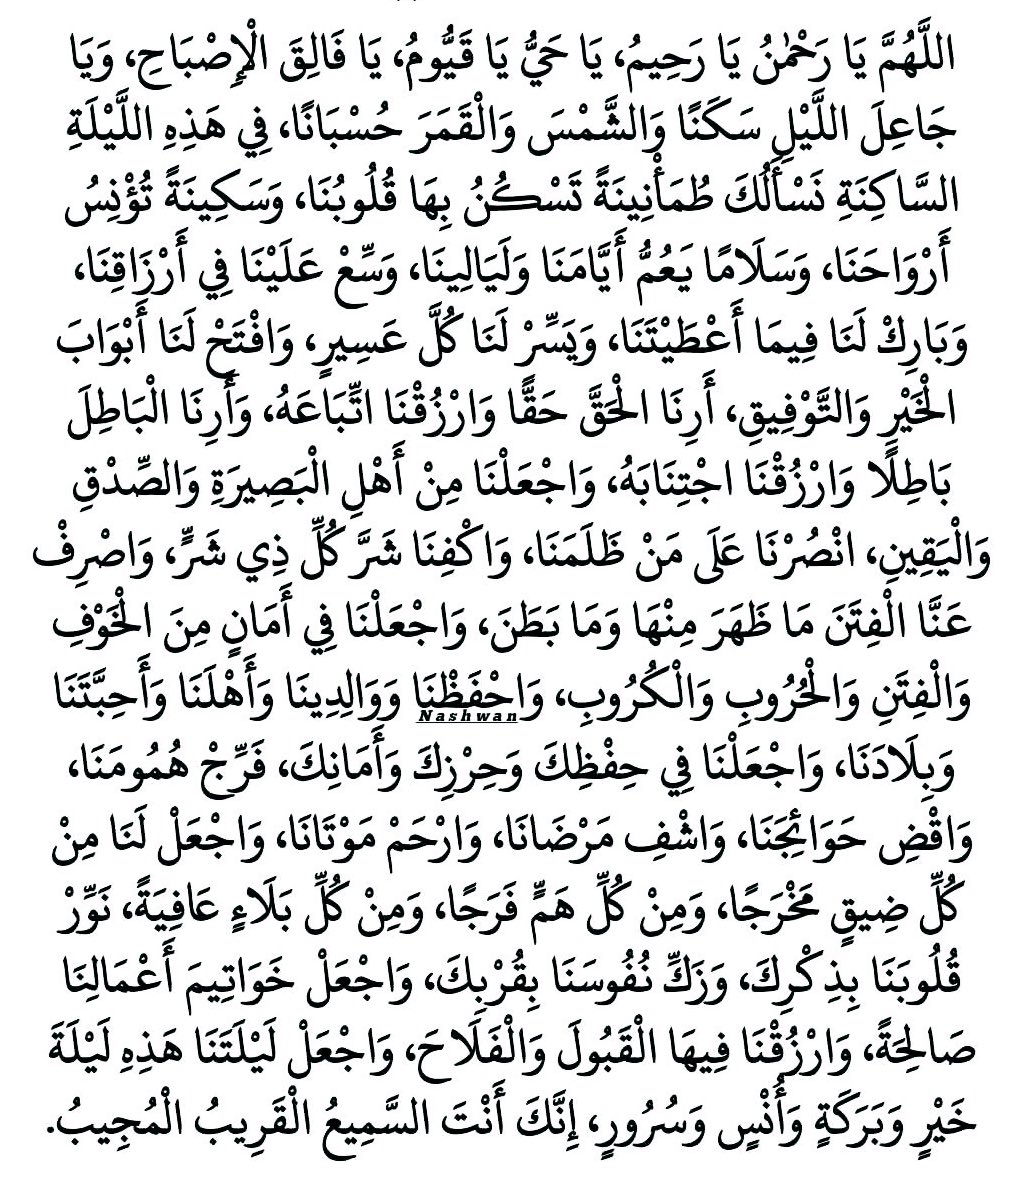 اللَّهُمَّ يَا رَحْمٰنُ يَا رَحِيمُ، يَا حَيُّ يَا قَيُّومُ، يَا فَالِقَ الْإِصْبَاحِ، وَيَا
جَاعِلَ اللَّيْلِ سَكَنًا وَالشَّمْسَ وَالْقَمَرَ حُسْبَانًا، فِي هَذِهِ اللَّيْلَةِ
السَّاكِنَةِ نَسْأَلُكَ طُمَأْنِينَةً تَسْكُنُ بِهَا قُلُوبُنَا، وَسَكِينَةً تُؤْنِسُ
أَرْوَاحَنَا، وَسَلَامًا يَعُمُّ أَيَّامَنَا وَلَيَالِينَا، وَسِّعْ عَلَيْنَا فِي أَرْزَاقِنَا،
وَبَارِكْ لَنَا فِيمَا أَعْطَيْتَنَا، وَيَسِّرْ لَنَا كُلَّ عَسِيرٍ، وَافْتَحْ لَنَا أَبْوَابَ
الْخَيْرِ وَالتَّوْفِيقِ، أَرِنَا الْحَقَّ حَقًّا وَارْزُقْنَا اتِّبَاعَهُ، وَأَرِنَا الْبَاطِلَ
بَاطِلًا وَارْزُقْنَا اجْتِنَابَهُ، وَاجْعَلْنَا مِنْ أَهْلِ الْبَصِيرَةِ وَالصِّدْقِ
وَالْيَقِينِ، انْصُرْنَا عَلَى مَنْ ظَلَمَنَا، وَاكْفِنَا شَرَّ كُلِّ ذِي شَرٍّ، وَاصْرِفْ
عَنَّا الْفِتَنَ مَا ظَهَرَ مِنْهَا وَمَا بَطَنَ، وَاجْعَلْنَا فِي أَمَانٍ مِنَ الْخَوْفِ
وَالْفِتَنِ وَالْحُرُوبِ وَالْكُرُوبِ، وَاحْفَظْنَا وَوَالِدِينَا وَأَهْلَنَا وَأَحِبَّتَنَا
Nashwan
وَبِلَادَنَا، وَاجْعَلْنَا فِي حِفْظِكَ وَحِرْزِكَ وَأَمَانِكَ، فَرِّجْ هُمُومَنَا،
وَاقْضِ حَوَائِجَنَا، وَاشْفِ مَرْضَانَا، وَارْحَمْ مَوْتَانَا، وَاجْعَلْ لَنَا مِنْ
كُلِّ ضِيقٍ مَخْرَجًا، وَمِنْ كُلِّ هَمٍّ فَرَجًا، وَمِنْ كُلِّ بَلَاءٍ عَافِيَةً، نَوِّرْ
قُلُوبَنَا بِذِكْرِكَ، وَزَكِّ نُفُوسَنَا بِقُرْبِكَ، وَاجْعَلْ خَوَاتِيمَ أَعْمَالِنَا
صَالِحَةً، وَارْزُقْنَا فِيهَا الْقَبُولَ وَالْفَلَاحَ، وَاجْعَلْ لَيْلَتَنَا هَذِهِ لَيْلَةَ
خَيْرٍ وَبَرَكَةٍ وَأُنْسٍ وَسُرُورٍ، إِنَّكَ أَنْتَ السَّمِيعُ الْقَرِيبُ الْمُجِيبُ.